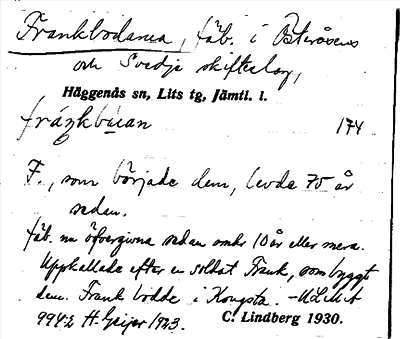 Frankbodarna, fäb. i Österåsens
och Svedje skifteslag,
Häggenås sn, Lits tg, Jämtl. l.
fráŋkbu̠an 174
F., som började dem, levde 75 år
sedan.
fäb. nu öfvergivna sedan omkr 10 år eller mera.
Uppkallade efter en soldat Frank, som byggt
dem. Frank bodde i Kougsta. – ULMA
994:2 H. Geijer 1923. C. Lindberg 1930.